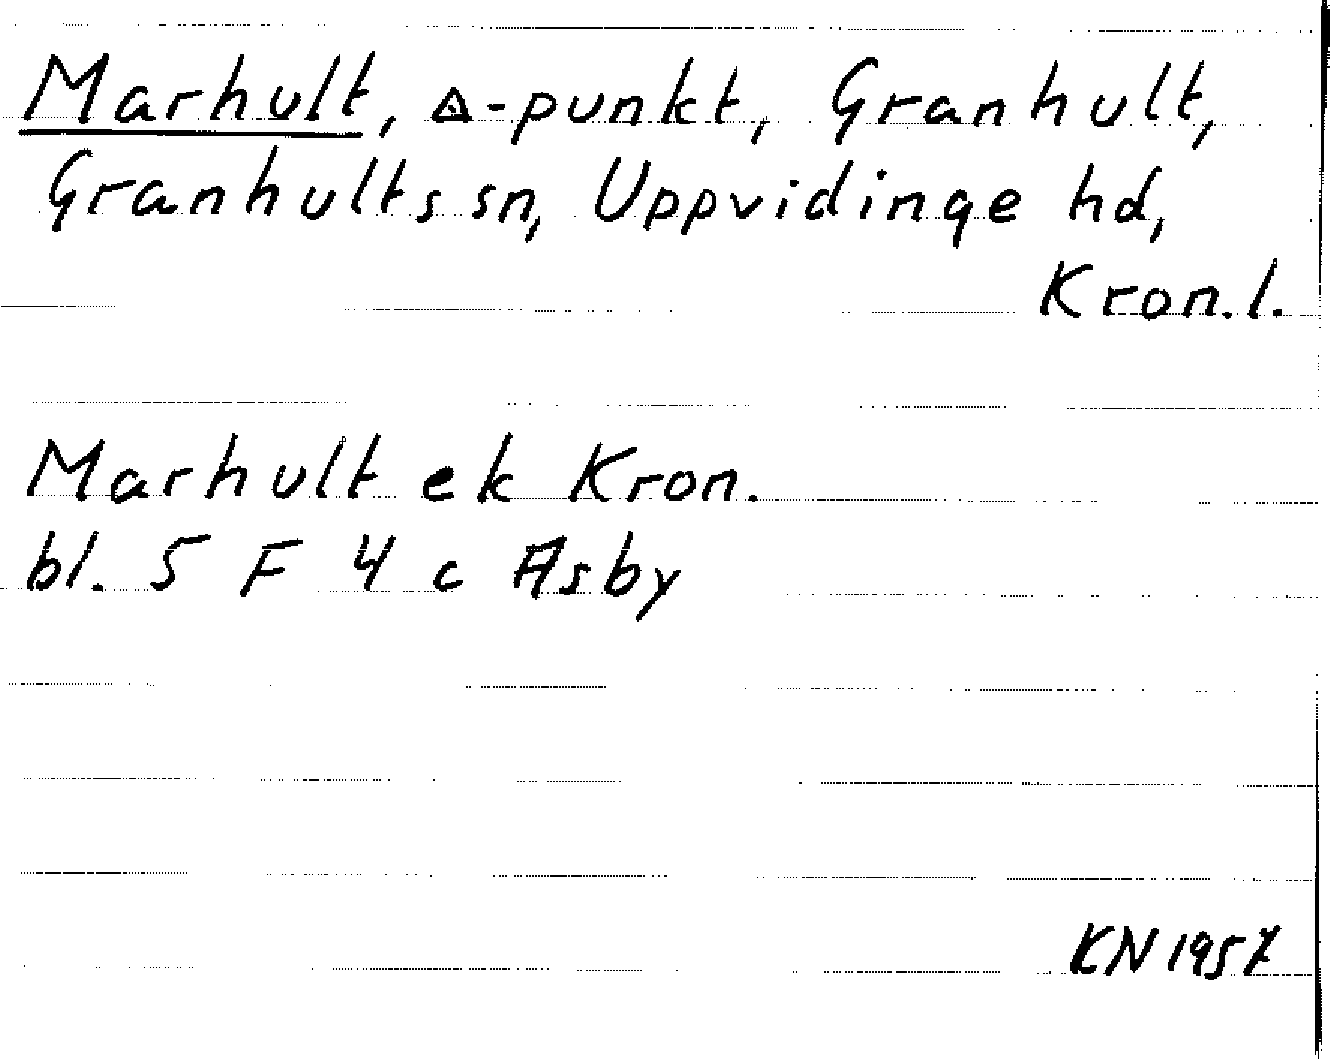 Marhult, △-punkt, Granhult,
Granhults sn, Uppvidinge hd,
Kron. l.
Marhult ek Kron.
bl. 5 F 4 c Åsby
KN 1957